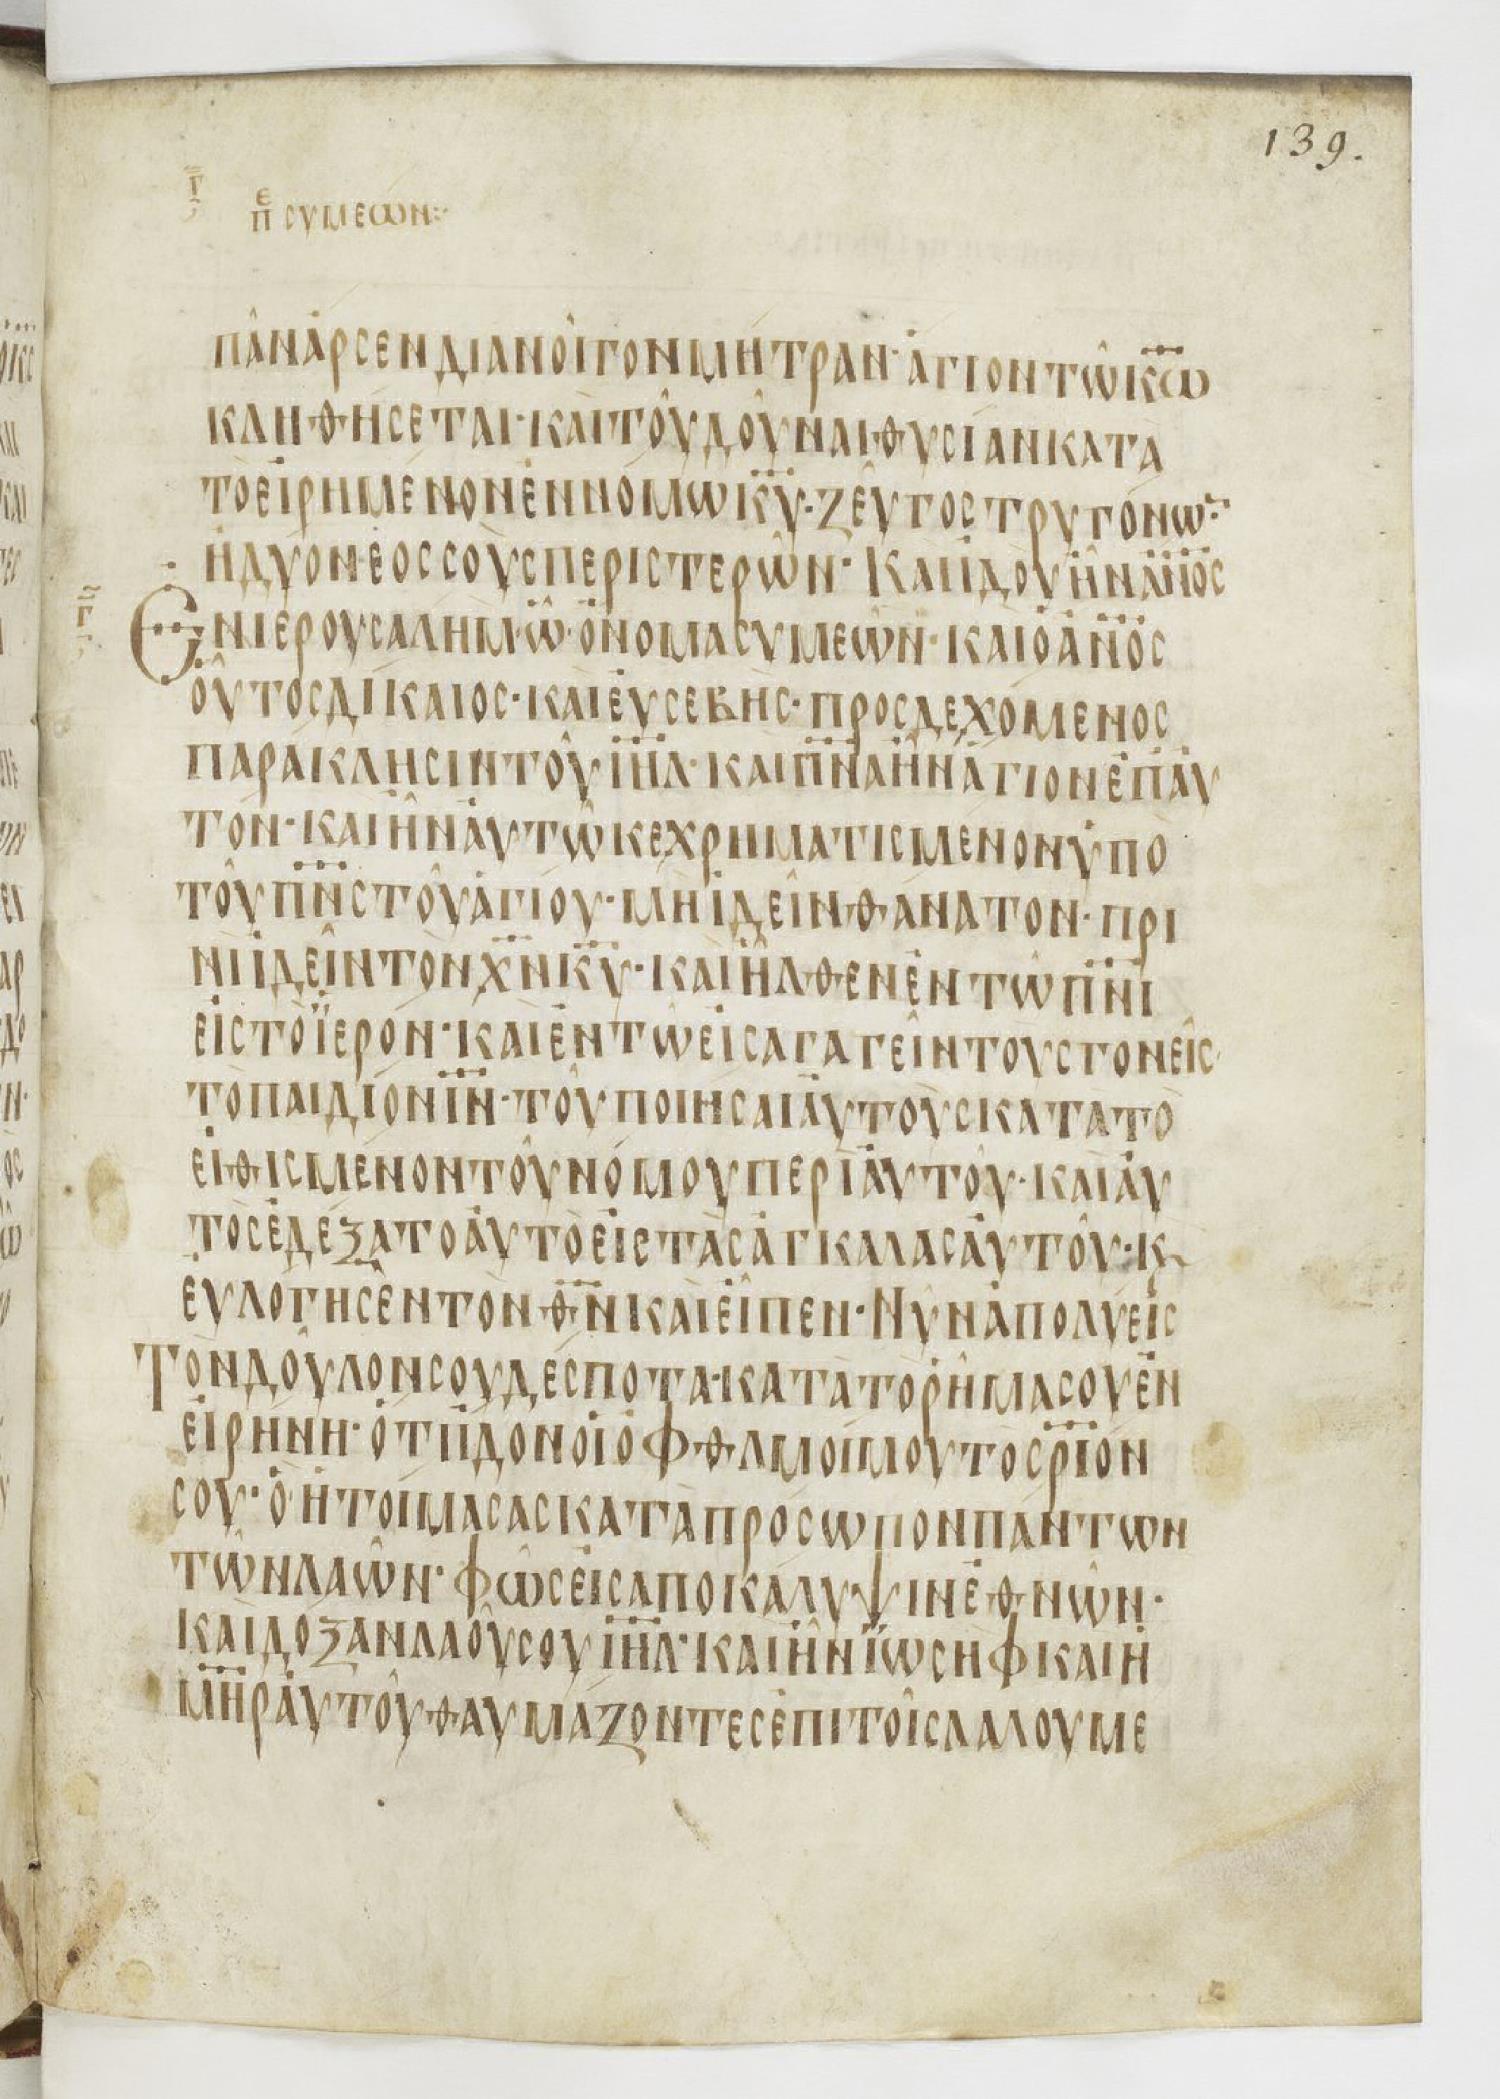 139.
Γ
ΠΕ ϹΥΜΕΩΝ:
ΠᾶΝἄΡϹΕΝΔΙΑΝΟῖΓΟΝΜήΤΡΑΝ· ἅΓΙΟΝΤῶΚ̅Ω̅
ΚΛΗΘήϹΕΤΑΙ· ΚΑὶΤΟῦΔΟῦΝΑΙΘΥϹίΑΝΚΑΤΑ
ΤὸΕἰΡΗΜέΝΟΝἐΝΝόΜΩΚ̅Υ̅· ΖΕῦΓΟϹΤΡΥΓόΝΩ:
ἢΔΥΟΝΕΟϹϹΟὺϹΠΕΡΙϹΤΕΡῶΝ· ΚΑὶἸΔΟΥἦΝΑ̅Ν̅Ο̅Ϲ̅
ἘΝΙΕΡΟΥϹΑΛὴΜ· ᾧ· ὄΝΟΜΑϹΥΜΕῶΝ· ΚΑὶὁΑ̅Ν̅Ο̅Ϲ̅
ΟὗΤΟϹΔίΚΑΙΟϹ· ΚΑὶΕὐϹΕΒὴϹ· ΠΡΟϹΔΕΧόΜΕΝΟϹ
ΠΑΡάΚΛΗϹΙΝΤΟῦΙ̅Η̅Λ̅· ΚΑὶΠ̅Ν̅Α̅ἦΝἅΓΙΟΝἐΠΑὐ
ΤόΝ· ΚΑὶἦΝΑὐΤῶΚΕΧΡΗΜΑΤΙϹΜέΝΟΝὑΠὸ
ΤΟῦΠ̅Ν̅Ϲ̅ΤΟῦἁΓίΟΥ· ΜὴἰΔΕῖΝΘάΝΑΤΟΝ· ΠΡὶ
ΝἢἰΔΕῖΝΤὸΝΧ̅Ν̅Κ̅Υ̅· ΚΑὶἦΛΘΕΝἐΝΤῶΠ̅Ν̅Ι̅
ΕἰϹΤὸἱΕΡόΝ· ΚΑὶἐΝΤῶΕἰϹΑΓΑΓΕῖΝΤΟὺϹΓΟΝΕῖϹ·
ΤὸΠΑΙΔίΟΝΙ̅Ν̅· ΤΟῦΠΟΙῆϹΑΙΑὐΤΟὺϹΚΑΤὰΤὸ
ΕἰΘΙϹΜέΝΟΝΤΟῦΝόΜΟΥΠΕΡὶΑὐΤΟῦ· ΚΑὶΑὐ
ΤὸϹἐΔέΞΑΤΟΑὐΤὸΕἰϹΤὰϹἀΓΚάΛΑϹΑὐΤΟῦ· Κ
ΕὐΛόΓΗϹΕΝΤὸΝΘ̅Ν̅ΚΑὶΕἶΠΕΝ· ΝῦΝἀΠΟΛύΕΙϹ
ΤὸΝΔΟῦΛΟΝϹΟΥΔέϹΠΟΤΑ· ΚΑΤὰΤὸῥῆΜΑϹΟΥἐΝ
ΕἰΡήΝΗ· ὅΤΙἴΔΟΝΟἱὀΦΘΑΛΜΟίΜΟΥΤὸϹ̅Ρ̅Ι̅Ο̅Ν̅
ϹΟΥ· ὃἡΤΟίΜΑϹΑϹΚΑΤὰΠΡόϹΩΠΟΝΠάΝΤΩΝ
ΤῶΝΛΑῶΝ· ΦῶϹΕἰϹἀΠΟΚάΛΥΨΙΝἐΘΝῶΝ·
ΚΑὶΔόΞΑΝΛΑΟῦϹΟΥΙ̅Η̅Λ̅· ΚΑὶἦΝἸΩϹὴΦΚΑὶἡ
Μ̅Η̅Ρ̅ΑὐΤΟῦΘΑΥΜάΖΟΝΤΕϹἐΠὶΤΟῖϹΛΑΛΟΥΜΕ